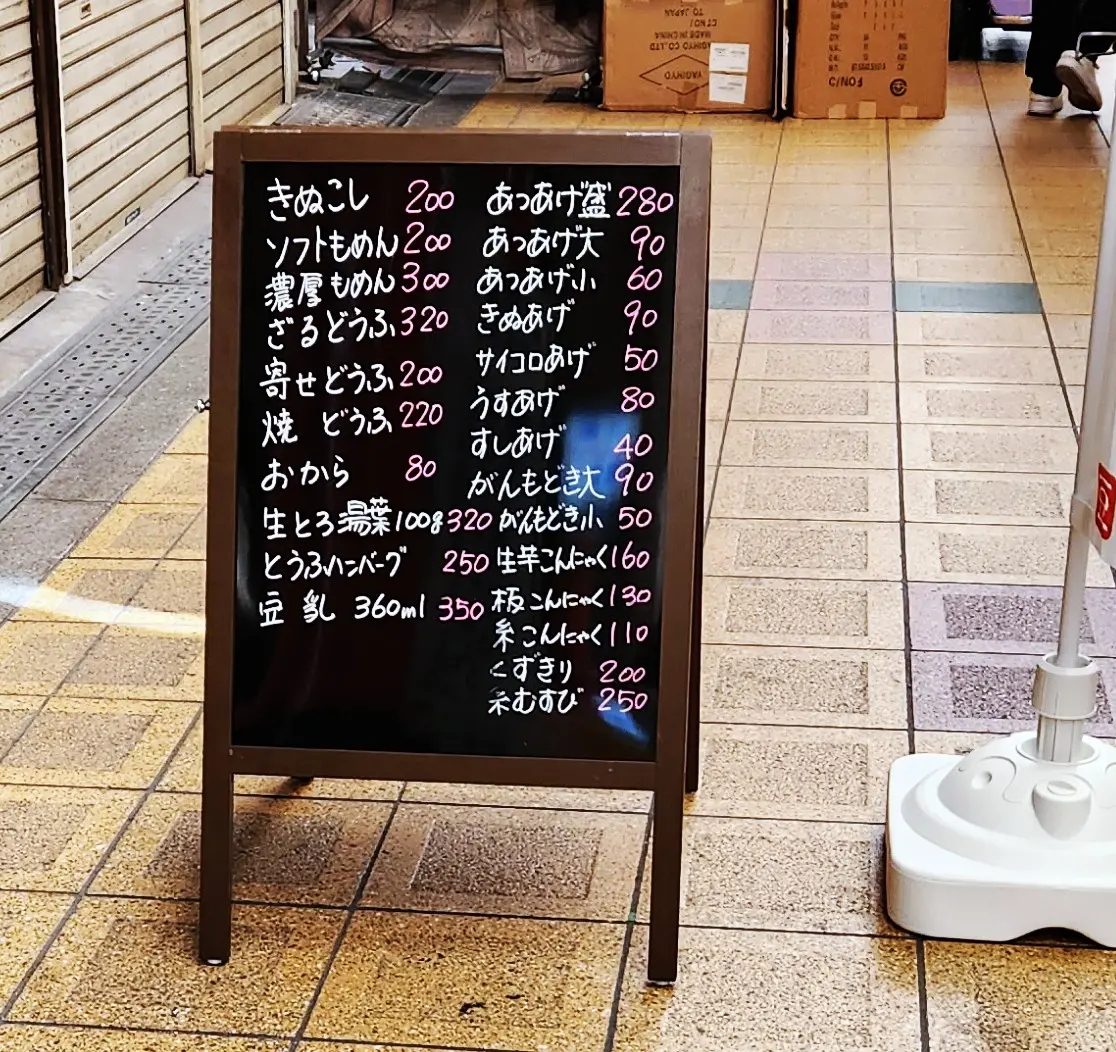 きぬこし 200
ソフトもめん 200
濃厚もめん 300
ざるどうふ 320
寄せどうふ 200
焼 どうふ 220
おから 80
生とろ湯葉100g 320
とうふハンバーグ 250
豆 乳 360ml 350
あつあげ盛 280
あつあげ大 90
あつあげ小 60
きぬあげ 90
サイコロあげ 50
うすあげ 80
すしあげ 40
がんもどき大 90
がんもどき小 50
生芋こんにゃく 160
板こんにゃく 130
糸こんにゃく 110
くずきり 200
糸むすび 250
YAGIHYO CO.,LTD
MADE IN CHINA
CT NO/
TO JAPAN